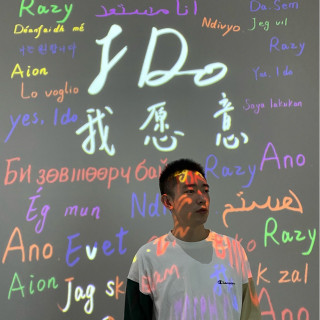 Razy
أنا مستعد
Da. Sem
Déanfaidh mé
Ndivyo
Jeg vil
I Do
Razy
Aion
Yes, I do
Lo voglio
Saya lakukan
yes, I do
我愿意
Би зөвшөөрч бай
Razy
Ano
Ég mun
Ndi
Razy
Ano
Evet
Aion
Jag sk
k zal
Ano
Champion